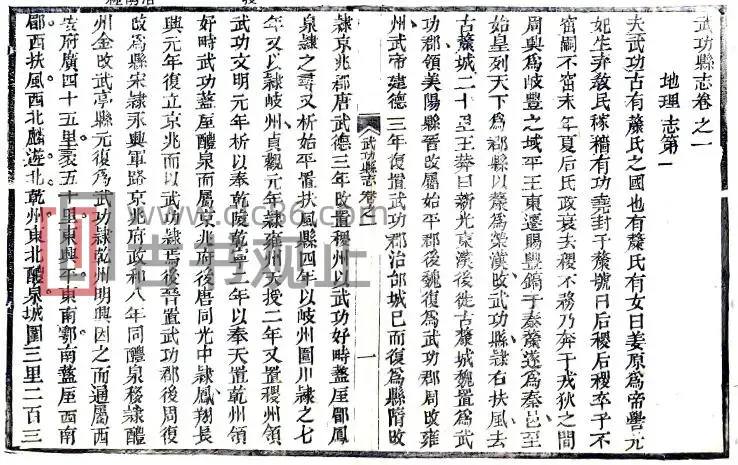 武功縣志卷之一
地理志第一
夫武功古有斄氏之國也有斄氏有女曰姜原爲帝嚳元
妃生弃敎民稼穡有功堯封于斄號曰后稷后稷卒子不
窋嗣不窋末年夏后氏政衰去稷不務乃奔于戎狄之間
周興爲岐豐之域平王東遷賜豐鎬于秦斄遂爲秦邑至
始皇列天下爲郡縣以斄爲
漢改武功縣隷右扶風去
古斄城二十里王莽曰新光東漢後徙古斄城魏置爲武
功郡領美陽縣晉改屬始平郡後魏復爲武功郡周改雍
州武帝建德三年復置武功郡治郿城已而復爲縣隋改
武功縣志卷一
一
隷京兆郡唐武德三年改置稷州以武功好畤盩厔郿鳳
泉隷之尋又析始平置扶風縣四年以岐州圍川隷之七
年又以隷岐州貞觀元年隷雍州天授二年又置稷州領
好畤武功盩厔醴泉而屬京兆府後唐同光中隷鳳翔長
武功文明元年析以奉乾陵乾寧二年以奉天置乾州領
興元年復立京兆而以武功隷焉後晉置武功郡後周復
改爲縣宋隷永興軍路京兆府政和八年同醴泉移隷醴
州金改武亭縣元復爲武功隷乾州明興因之而通屬西
安府廣四十五里袤五十里東興平東南鄠南盩厔西南
郿西扶風西北麟遊北乾州東北醴泉城圍三里二百三
www.gc86.com
古书观止